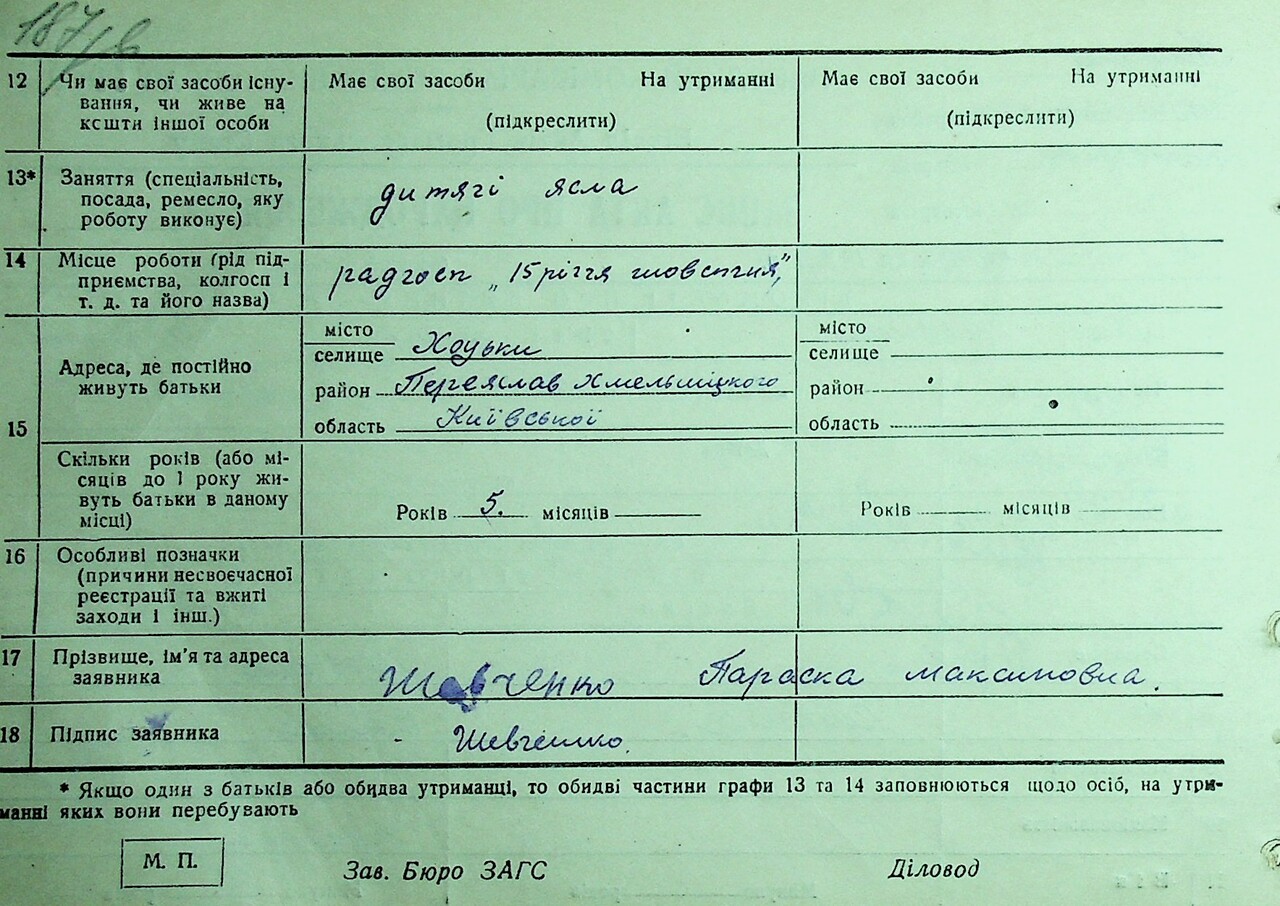 187/в
12 Чи має свої засоби існу- Має свої засоби На утриманні Має свої засоби На утриманні
вання, чи живе на
кошти іншої особи (підкреслити) (підкреслити)
13* Заняття (спеціальність, дитячі ясла
посада, ремесло, яку
роботу виконує)
14 Місце роботи (рід під- радгосп „15 річчя
приємства, колгосп і
т. д. та його назва)
15 Адреса, де постійно
живуть батьки
місто місто
селище Хоцьки селище
район Переяслав Хмельницкого район
область Київської область
Скільки років (або мі-
сяців до 1 року жи-
вуть батьки в даному
місці) Років 5. місяців Років місяців
16 Особливі позначки
(причини несвоєчасної
реєстрації та вжиті
заходи і інш.)
17 Прізвище, ім'я та адреса
заявника Шевченко Параска Максимовна.
18 Підпис заявника - Шевченко.
* Якщо один з батьків або обидва утриманці, то обидві частини графи 13 та 14 заповнюються щодо осіб, на утри-
манні яких вони перебувають
М. П. Зав. Бюро ЗАГС Діловод